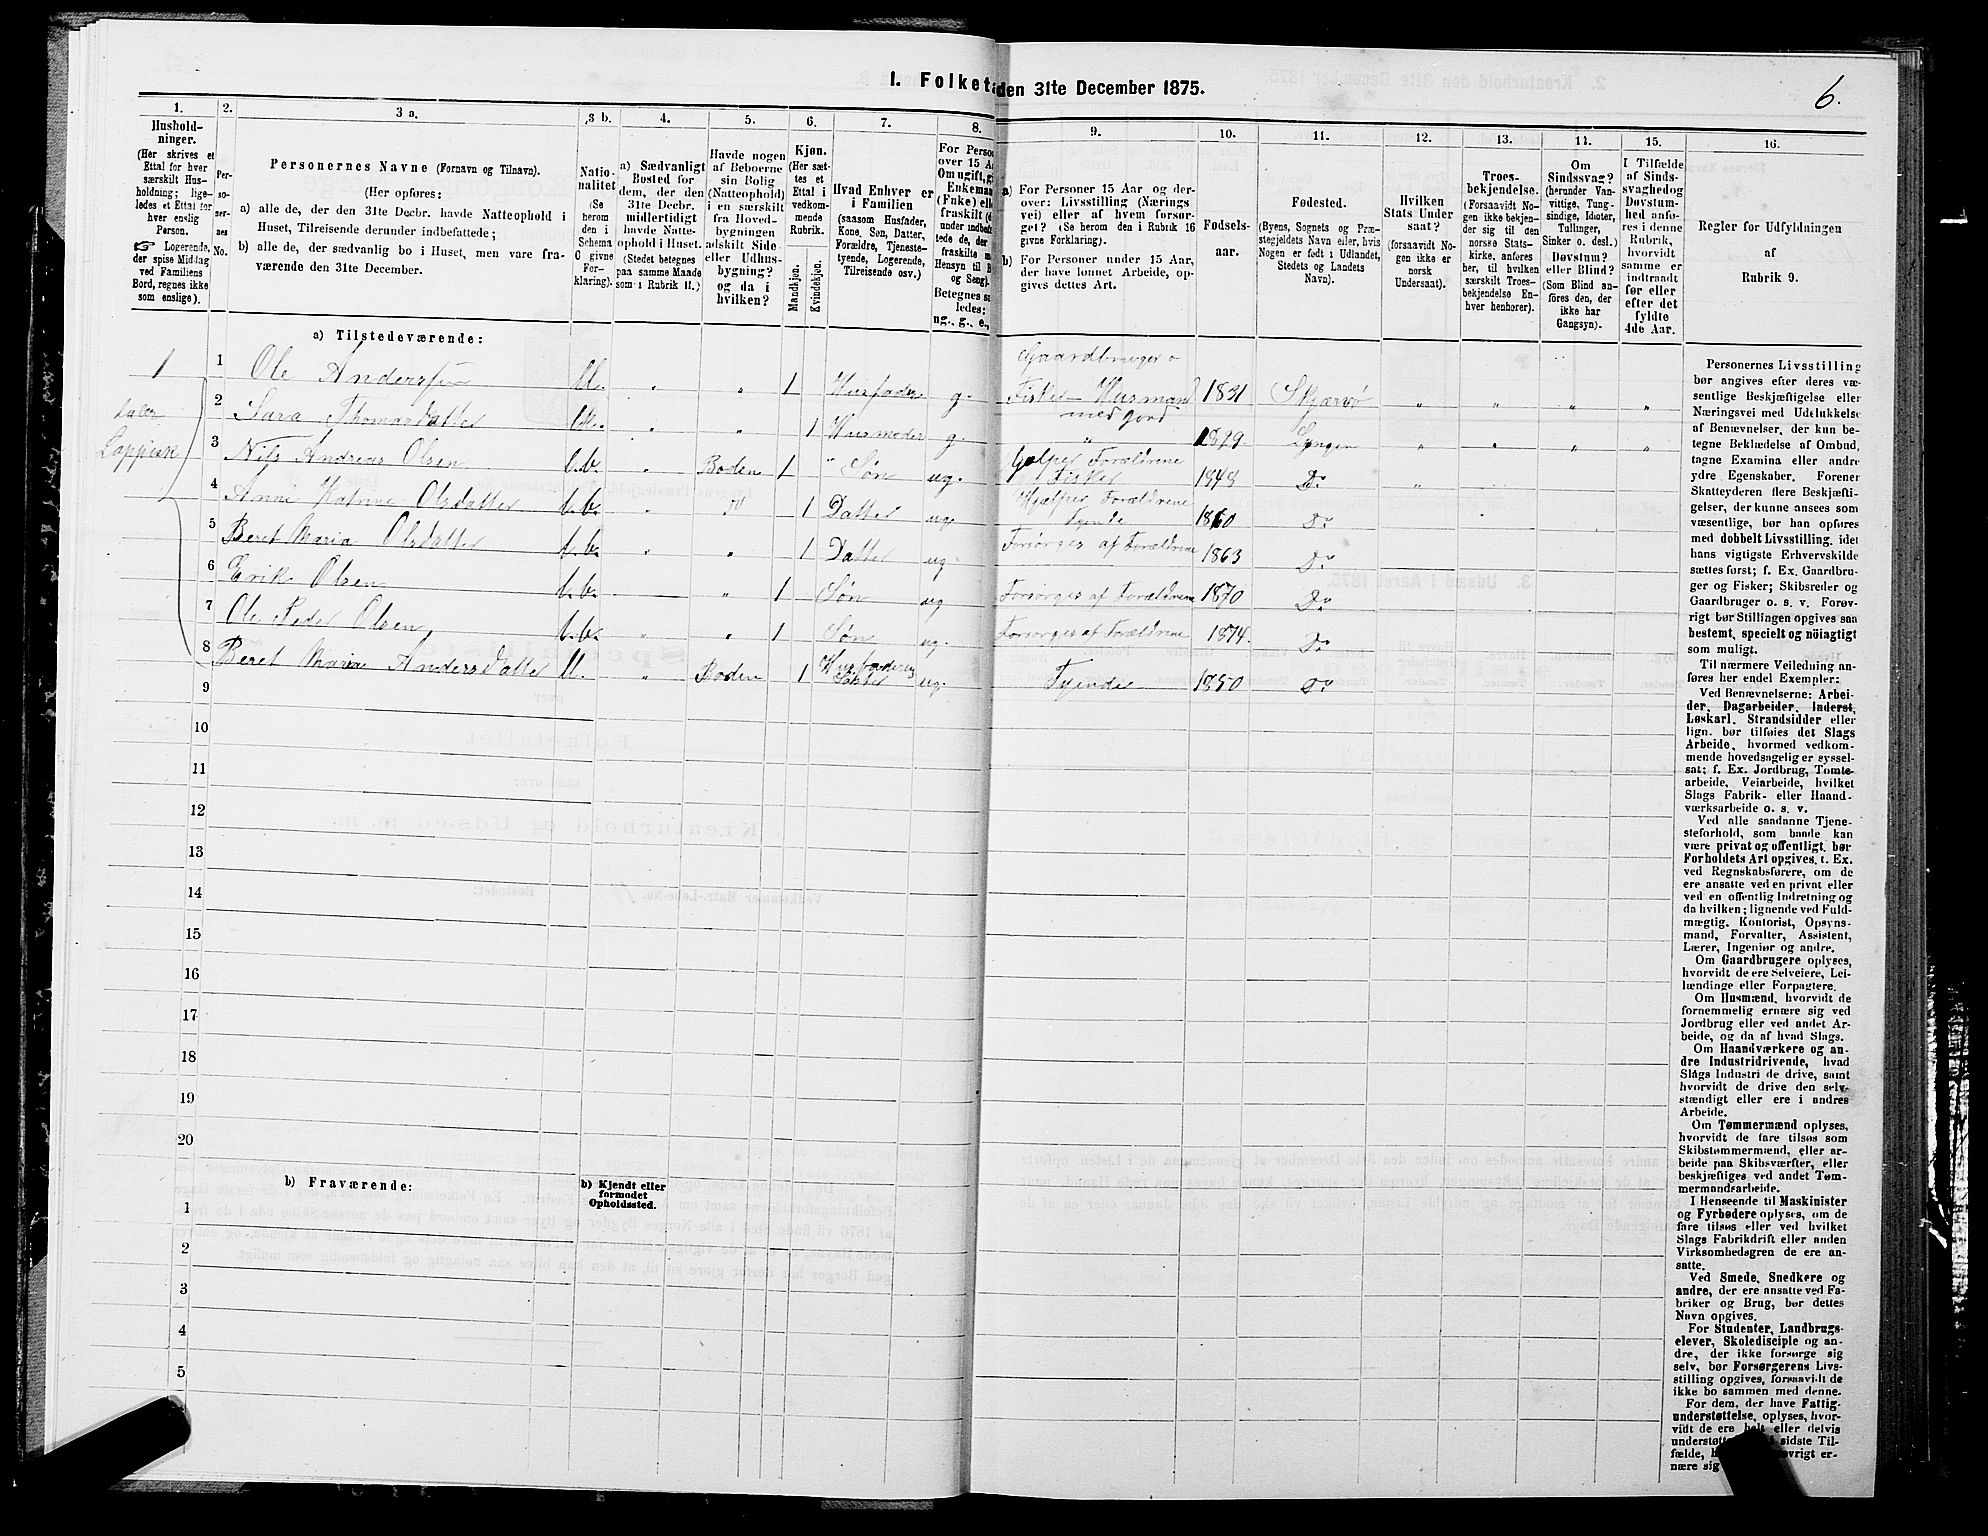 6.
I. Folketæ den 31te December 1875.
1. 2. 3 a. 3 b. 4. 5. 6. 7. 8. 9. 10. 11. 12. 13. 14. 15. 16.
Hushold-
ninger.
(Her skrives et
Ettal for hver
særskilt Hus-
holdning; lige-
ledes et Ettal for
hver enslig
Person.
☞ Logerende,
der spise Middag
ved Familiens
Bord, regnes ikke
som enslige).
Per-
so-
ner-
nes
No.
Personernes Navne (Fornavn og Tilnavn).
(Her opføres:
a) alle de, der den 31te Decbr. havde Natteophold i
Huset, Tilreisende derunder indbefattede;
b) alle de, der sædvanlig bo i Huset, men vare fra-
værende den 31te December.
Natio-
nalitet
(Se
herom
den i
Schema
C givne
For-
klaring).
a) Sædvanligt
Bosted for
dem, der den
31te Decbr.
midlertidigt
havde Natte-
ophold i Huset.
(Stedet betegnes
paa samme Maade
som i Rubrik 11.)
Havde nogen
af Beboerne
sin Bolig
(Natteophold)
i en særskilt
fra Hoved-
bygningen
adskilt Side-
eller Udhus-
bygning?
og da i
hvilken?
Kjøn.
(Her sæt-
tes et
Ettal i
vedkom-
mende
Rubrik.
Mandkjøn.
Kvindekjøn.
Hvad Enhver er
i Familien
(saasom Husfader,
Kone, Søn, Datter,
Forældre, Tjeneste-
tyende, Logerende,
Tilreisende osv.)
For Person
over 15 Aa
Om ugift, g
Enkeman
(Enke) elle
fraskilt (d
under indbef
tede de, der
fraskilte m
Hensyn til B
og Seng).
Betegnes sa
ledes:
ug., g., e.,
a) For Personer 15 Aar og der-
over: Livsstilling (Nærings
vei) eller af hvem forsør-
get? (Se herom den i Rubrik 16
givne Forklaring).
b) For Personer under 15 Aar,
der have lønnet Arbeide, op-
gives dettes Art.
Fødsels-
aar.
Fødested.
(Byens, Sognets og Præ-
stegjeldets Navn eller, hvis
Nogen er født i Udlandet,
Stedets og Landets
Navn).
Hvilken
Stats Under
saat?
(forsaavidt No-
gen ikke er
norsk
Undersaat).
Troes-
bekjendelse.
(Forsaavidt No-
gen ikke bekjen-
der sig til den
norske Stats-
kirke, anføres
her, til hvilken
særskilt Troes-
bekjendelse En-
hver henhører).
Om
Sindssvag?
(herunder Van-
vittige, Tung-
sindige, Idioter,
Tullinger,
Sinker o. desl.)
Døvstum?
eller Blind?
(Som Blind an-
føres den, der
ikke har
Gangsyn).
I Tilfælde
af Sinds-
svaghedog
Døvstum-
hed anfø-
res i denne
Rubrik,
hvorvidt
samme er
indtraadt
før eller
efter det
fyldte
4de Aar.
Regler for Udfyldningen
af
Rubrik 9.
a) Tilstedeværende:
1 1 Ole Anderssen U. " " 1 Husfader g. Gaardbruger o Fisker Husmand med jord 1831 Skjærvø " " " "
taler
Lappisk
2 Sara Thomasdatter U. " " 1 Husmoder g. " 1829 Lyngen " " " "
3 Nils Andreas Olsen b.b. " Boden 1 Søn ug. Gjelper Forældrene Fisker 1848 Do "
4 Anne Katrine Olsdatter b.b. " 1 Datter ug. Hjælper Forældrene Tyende 1860 Do
5 Beret Maria Olsdatter b.b. " " 1 Datter ug. Forsørges af Forældrene 1863 Do
6 Erik Olsen b.b. " 1 Søn ug Forsørges af Forældrene 1870 Do
7 Ole Peder Olsen b.b. " " 1 Søn ug. Forsørges af Forældrene 1874. Do
8 Beret Maria Andersdatter U. " Boden 1 Husfaderens Søster ug. Tyende 1850 Do
9
10
11
12
13
14
15
16
17
18
19
20
b) Fraværende:
b) Kjendt eller
formodet
Opholdssted.
1
2
3
4
5
Personernes Livsstilling
bør angives efter deres væ-
sentlige Beskjæftigelse eller
Næringsvei med Udelukkelse
af Benævnelser, der kun be-
tegne Beklædelse af Ombud,
tagne Examina eller andre
ydre Egenskaber. Forener
Skatteyderen flere Beskjæfti-
gelser, der kunne ansees som
væsentlige, bør han opføres
med dobbelt Livsstilling, idet
hans vigtigste Erhvervskilde
sættes først; f. Ex. Gaardbru-
ger og Fisker; Skibsreder og
Gaardbruger o. s. v. Forøv-
rigt bør Stillingen opgives saa
bestemt, specielt og nøiagtigt
som muligt.
Til nærmere Veiledning an-
føres her endel Exempler:
Ved Benævnelserne: Arbei-
der, Dagarbeider, Inderst,
Løskarl, Strandsidder eller
lign. bør tilføies det Slags
Arbeide, hvormed vedkom-
mende hovedsagelig er syssel-
sat; f. Ex. Jordbrug, Tomte-
arbeide, Veiarbeide, hvilket
Slags Fabrik- eller Haand-
værksarbeide o. s. v.
Ved alle saadanne Tjene-
steforhold, som baade kan
være privat og offentligt, bør
Forholdets Art opgives, t. Ex.
ved Regnskabsførere, om de
ere ansatte ved en privat eller
ved en offentlig Indretning og
da hvilken; lignende ved Fuld-
mægtig, Kontorist, Opsyns-
mand, Forvalter, Assistent,
Lærer, Ingeniør og andre.
Om Gaardbrugere oplyses,
hvorvidt de ere Selveiere, Lei-
lændinge eller Forpagtere.
Om Husmænd, hvorvidt de
fornemmelig ernære sig ved
Jordbrug eller ved andet Ar-
beide, og da af hvad Slags.
Om Haandværkere og an-
dre Industridrivende, hvad
Slags Industri de drive, samt
hvorvidt de drive den selv-
stændigt eller ere i andres
Arbeide.
Om Tømmermænd oplyses,
hvorvidt de fare tilsøs som
Skibstømmermænd, eller ar-
beide paa Skibsværfter, eller
beskjæftiges ved andet Tøm-
mermandsarbeide.
I Henseende til Maskinister
og Fyrbødere oplyses, om de
fare tilsøs eller ved hvilket
Slags Fabrikdrift eller anden
Virksomhedsgren de ere an-
satte.
Ved Smede, Snedkere og
andre, der ere ansatte ved Fa-
briker og Brug, bør dettes
Navn opgives.
For Studenter, Landbrugs-
elever, Skoledisciple og an-
dre, der ikke forsørge sig
selv, bør Forsørgerens Livs-
stilling opgives, forsaavidt de
ikke bo sammen med denne.
For dem, der have Fattig-
understøttelse, oplyses, hvor-
vidt de ere helt eller delvis
understøtte sidste Til-
fælde, h vrigt er-
nære sig